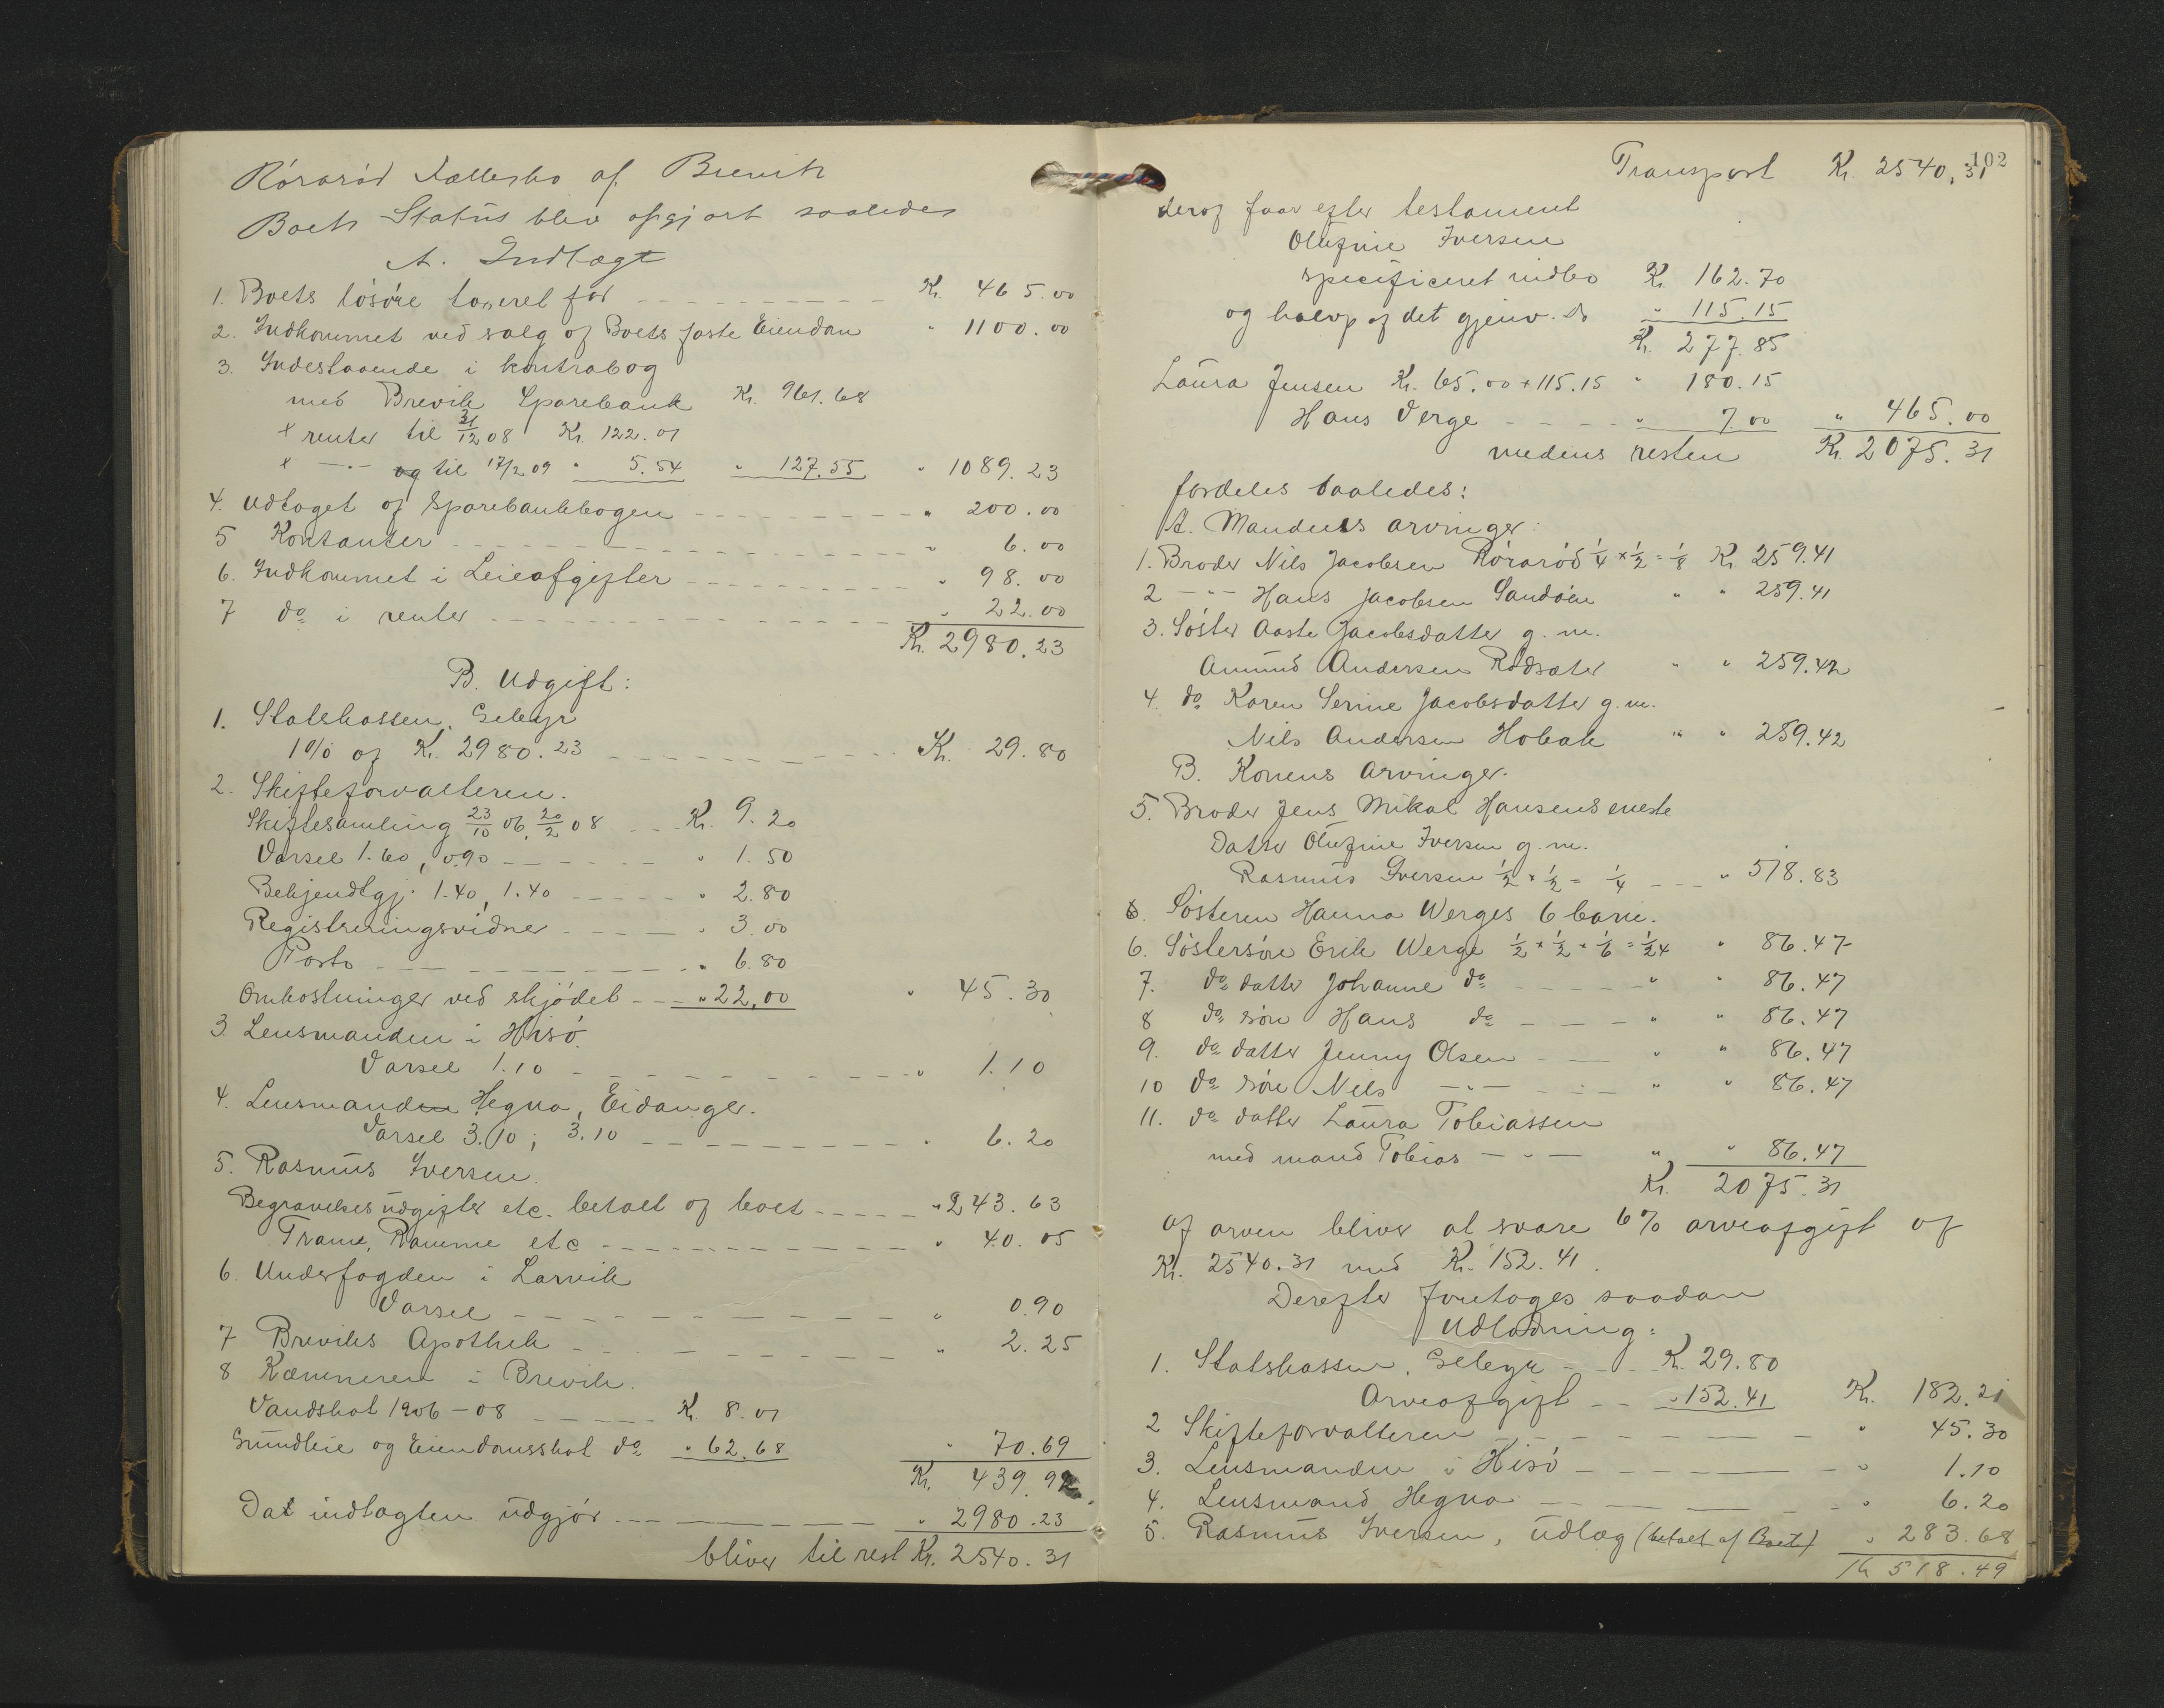 Rörarød Fællesbo af Brevik
Boets Status blev opgjort saaledes
A. Indtægt
1. Boets løsøre taxeret for Kr. 465.00
2. Indkommet ved salg af Boets faste Eiendom " 1100.00
3. Indestaaende i kontrabog
med Brevik Sparebank Kr. 961.68
+ renter til 31/12 08 Kr. 122.01
+ —"— og til 17/2 09 " 5.54 " 127.55 " 1089.23
4. Udtaget af Sparebankbogen " 200.00
5 Kontanter " 6.00
6. Indkommet i Leieafgifter " 98.00
7 do i renter " 22.00
Kr. 2980.23
B. Udgift:
1. Statskassen, Gebyr
1 % af Kr. 2980.23 Kr. 29.80
2. Skifteforvalteren.
Skiftesamling 23/10 06, 20/2 08 Kr. 9.20
Varsel 1.60, 0.90 " 1.50
Bekjendtgj. 1.40, 1.40 " 2.80
Registreringsvidner " 3.00
Porto " 6.80
Omkostninger ved skjødet " 22,00 " 45.30
3. Lensmanden i Hisø
Varsel 1.10 " 1.10
4. Lensmanden Hegna, Eidanger.
Varsel 3.10, 3.10 " 6.20
5. Rasmus Iversen.
Begravelsesudgifter etc. betalt af boet " 243.63
Tranu, Ramme etc " 40.05
6. Underfogden i Larvik
Varsel " 0.90
7 Breviks Apothek " 2.25
8 Kæmneren i Brevik.
Vandskat 1906–08 Kr. 8.01
Grundleie og Eiendomsskat do " 62.68 " 70.69
Kr. 439.92
Da indtægten udgjør " 2980.23
bliver til rest Kr. 2540.31
102
Transport Kr. 2540,31
deraf faar efter testament
Olufine Iversen
specificeret indbo Kr. 162.70
og halvp. af det gjenv. Do " 115.15
Kr. 277.85
Laura Jensen Kr. 65.00 + 115.15 " 180.15
Hans Verge " 7.00 " 465.00
medens resten Kr. 2075.31
fordeles saaledes:
A. Mandens arvinger:
1. Broder Nils Jacobsen Rørarød 1/4 × 1/2 = 1/8 Kr. 259.41
2 —"— Hans Jacobsen Sandøen " " 259.41
3. Søster Aaste Jacobsdatter g. m.
Amund Andersen Rødsæter " " 259.42
4. do Karen Serine Jacobsdatter g. m.
Nils Andersen Hobak " " 259.42
B. Konens Arvinger.
5. Broder Jens Mikal Hansens eneste
Datter Olufine Iversen g. m.
Rasmus Iversen 1/2 × 1/2 = 1/4 " 518.83
6. Søsteren Hanna Werges 6 barn.
6. Søstersøn Erik Werge 1/2 × 1/2 × 1/6 = 1/24 " 86.47
7. do datter Johanne do " " 86.47
8 do søn Hans do " " 86.47
9. do datter Jenny Olsen " " 86.47
10 do søn Nils —"— " " 86.47
11. do datter Laura Tobiassen
med mand Tobias —"— " " 86.47
Kr. 2075.31
Af arven bliver at svare 6% arveafgift af
Kr. 2540.31 med Kr. 152.41.
Derefter foretages saadan
Udlodning:
1. Statskassen, Gebyr Kr. 29.80
Arveafgift " 152.41 Kr. 182.21
2 Skifteforvalteren " 45.30
3. Lensmanden i Hisø " 1.10
4. Lensmand Hegna " 6.20
5. Rasmus Iversen, udlæg (betalt af Boet) " 283.68
Kr 518.49